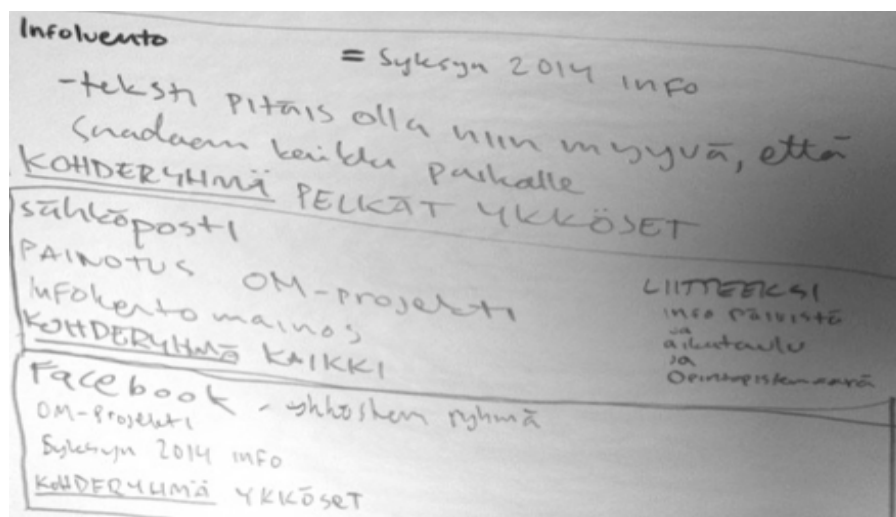 Infoluento
= Syksyn 2014 info
-teksti pitäis olla niin myyvä, että
saadaan kaikki paikalle
KOHDERYHMÄ PELKÄT YKKÖSET
sähköposti
PAINOTUS OM-projekti
Infoluento mainos
KOHDERYHMÄ KAIKKI
LIITTEEKSI
info päivistä
ja
aikataulu
ja
Opintopistemäärä
Facebook - ykkösten ryhmä
OM-Projekti
Syksyn 2014 info
KOHDERYHMÄ YKKÖSET